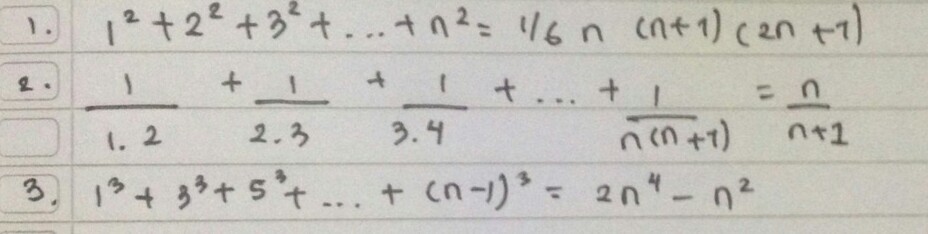 1. 1² + 2² + 3² + ... + n² = 1/6 n (n+1) (2n+1)
2. 1/1.2 + 1/2.3 + 1/3.4 + ... + 1/n(n+1) = n/n+1
3. 1³ + 3³ + 5³ + ... + (n-1)³ = 2n⁴ - n²